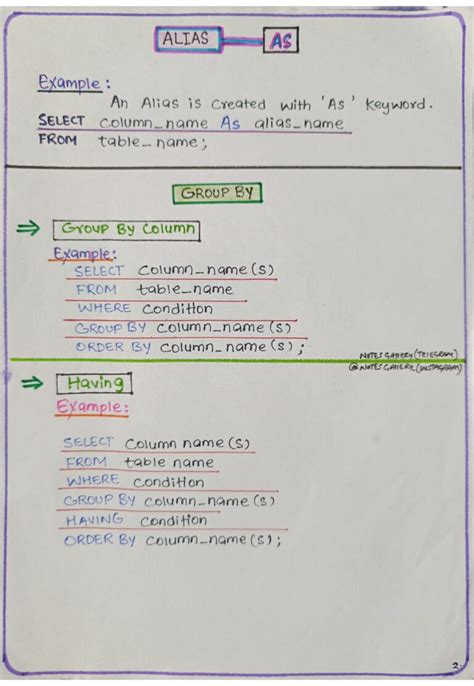 ALIAS AS
Example:
An Alias is created with 'As' keyword.
SELECT column_name As alias_name
FROM table_name;
GROUP BY
⇒ Group By Column
Example:
SELECT column_name(s)
FROM table_name
WHERE condition
GROUP BY column_name(s)
ORDER BY column_name(s);
NOTES GALLERY (TELEGRAM)
@NOTES GALLERY (INSTAGRAM)
⇒ Having
Example:
SELECT column name(s)
FROM table name
WHERE condition
GROUP BY column_name(s)
HAVING condition
ORDER BY column_name(s);
2.